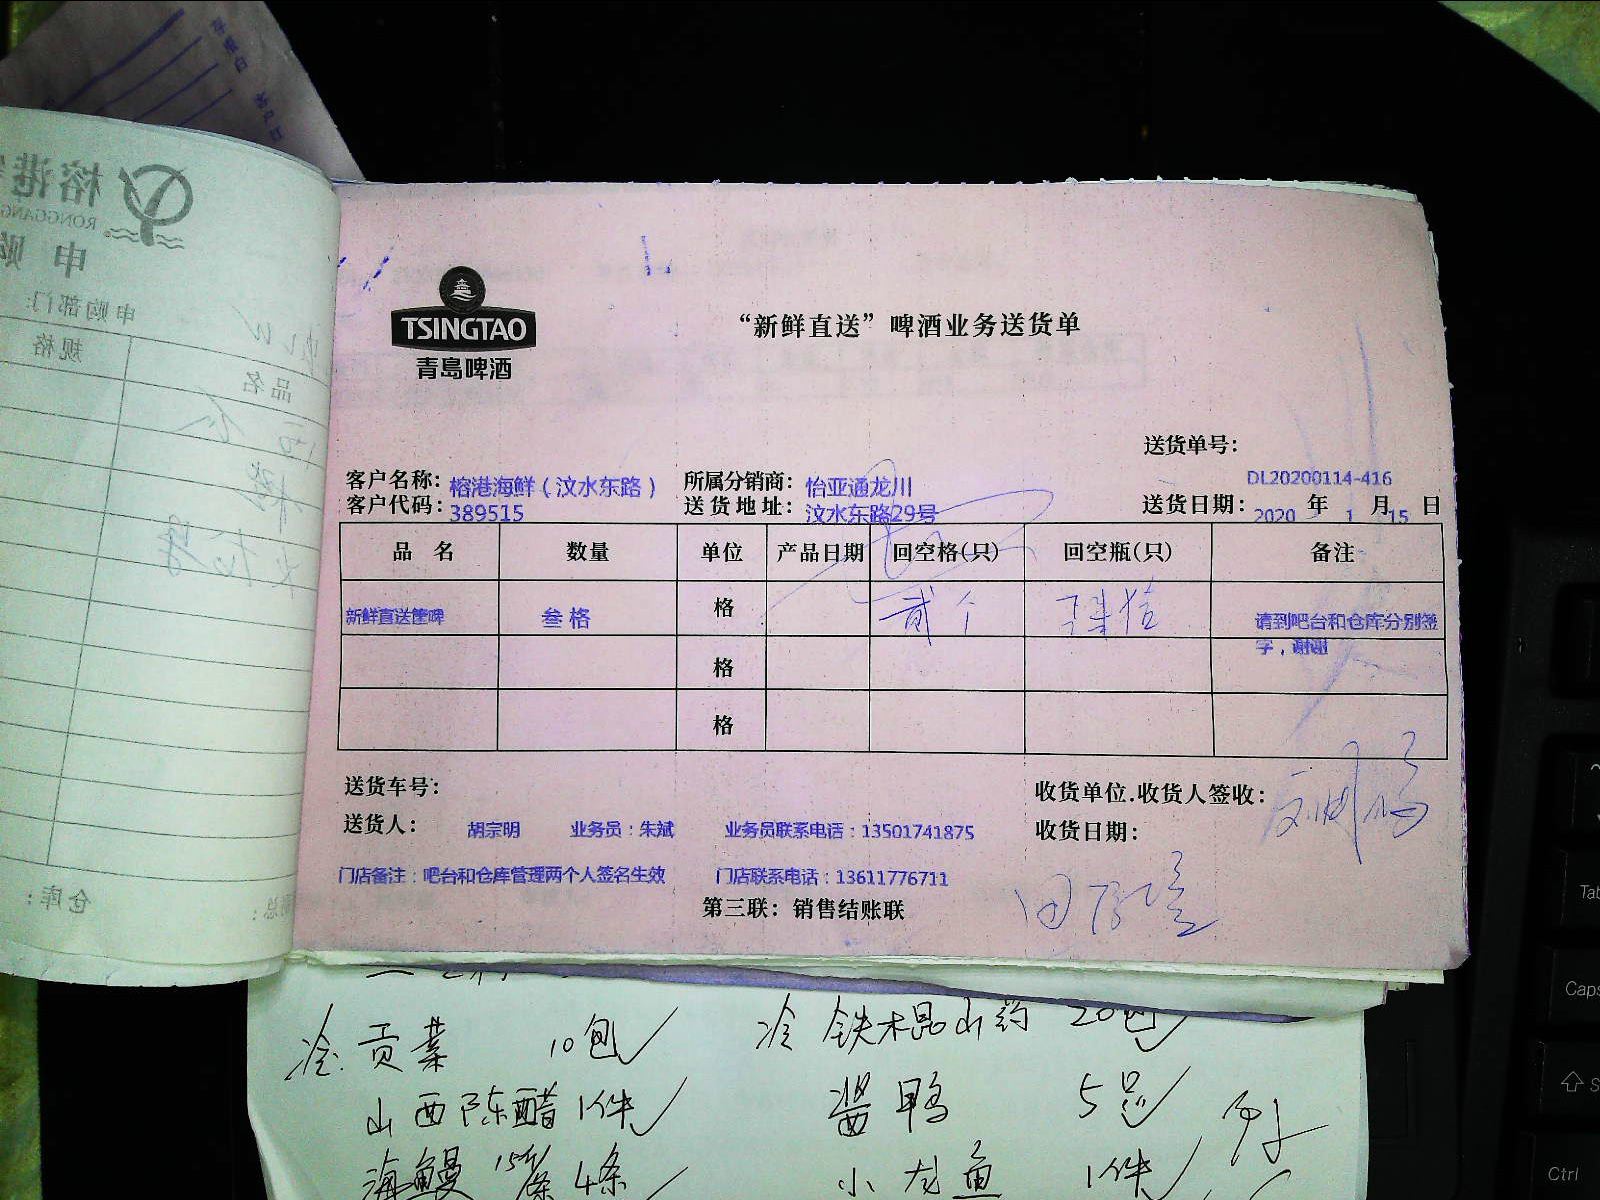 TSINGTAO
青島啤酒
“新鲜直送”啤酒业务送货单
送货单号：
DL20200114-416
客户名称：榕港海鲜（汶水东路） 所属分销商：怡亚通龙川
客户代码：389515 送货地址：汶水东路29号 送货日期：2020 年 1 月 15 日
品名 数量 单位 产品日期 回空格(只) 回空瓶(只) 备注
新鲜直送筐啤 叁格 格 贰个 请到吧台和仓库分别签
字，谢谢
格
格
送货车号： 收货单位.收货人签收：
送货人： 胡宗明 业务员：朱斌 业务员联系电话：13501741875 收货日期：
门店备注：吧台和仓库管理两个人签名生效 门店联系电话：13611776711
第三联：销售结账联
榕港
RONGGANG
申购
申购部门：
品名 规格
仓库：
冷 贡菜 10包 冷 铁木昆山药 20包
山西陈醋 1件 酱鸭 5只
海鳗 4条 小龙鱼 1件
Tab
Caps
Ctrl